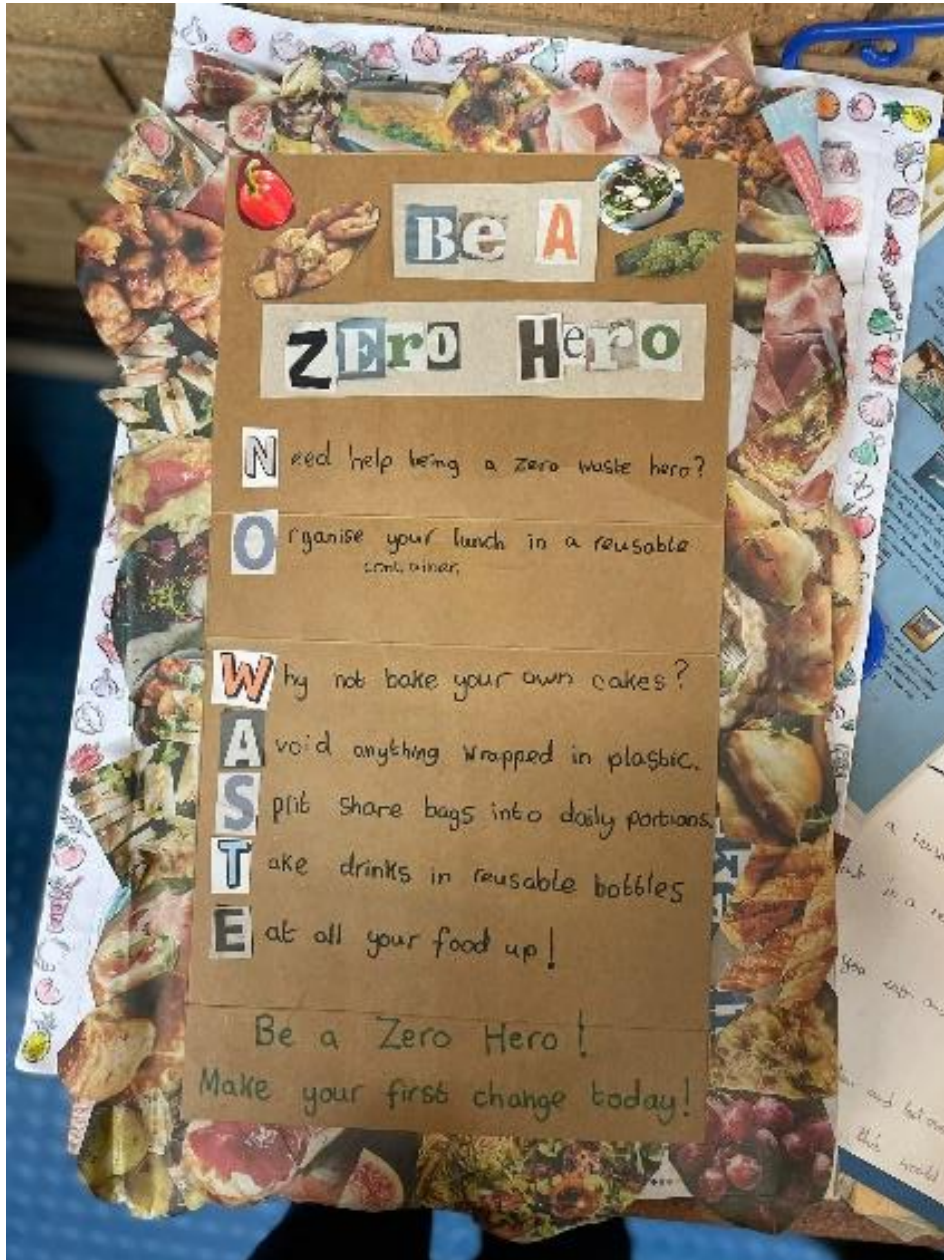 Be A
ZEro Hero
Need help being a zero waste hero?
Organise your lunch in a reusable
container.
Why not bake your own cakes?
Avoid anything wrapped in plastic.
Split share bags into daily portions.
Take drinks in reusable bottles
Eat all your food up!
Be a Zero Hero!
Make your first change today!
in a
You
and
this world